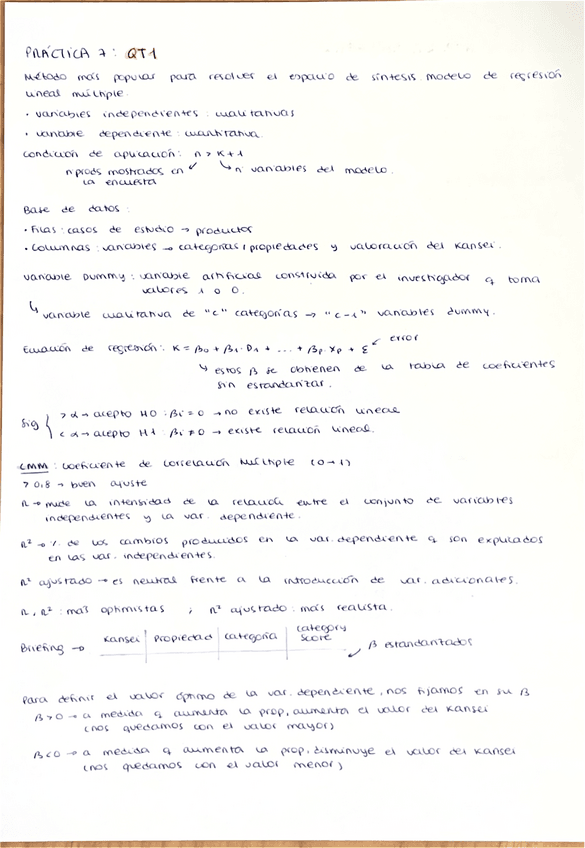 PRÁCTICA 7: QT1
Método más popular para resolver el espacio de síntesis modelo de regresión
lineal múltiple.
• variables independientes: cualitativas
• variable dependiente: cuantitativa.
condición de aplicación: n > k+1
n prods mostrados en la encuesta
nº variables del modelo.
Base de datos:
• Filas: casos de estudio → productos
• Columnas: variables → categorías, propiedades y valoración del Kansei.
variable Dummy: variable artificial construida por el investigador q toma
valores 1 o 0.
↳ variable cualitativa de "c" categorías → "c-1" variables dummy.
Ecuación de regresión: K = β0 + β1·D1 + ... + βp·Xp + ε ← error
↳ estos β se obtienen de la tabla de coeficientes
sin estandarizar.
Sig { > α → acepto H0: βi = 0 → no existe relación lineal
< α → acepto H1: βi ≠ 0 → existe relación lineal.
CMM: coeficiente de correlación Múltiple (0→1)
> 0,8 → buen ajuste
R → mide la intensidad de la relación entre el conjunto de variables
independientes y la var. dependiente.
R² → % de los cambios producidos en la var. dependiente q son explicados
en las var. independientes.
R² ajustado → es neutral frente a la introducción de var. adicionales.
R, R²: más optimistas ; R² ajustado: más realista.
Briefing → Kansei | Propiedad | categoría | category score
β estandarizados
Para definir el valor óptimo de la var. dependiente, nos fijamos en su β
β>0 → a medida q aumenta la prop, aumenta el valor del Kansei
(nos quedamos con el valor mayor)
β<0 → a medida q aumenta la prop, disminuye el valor del Kansei
(nos quedamos con el valor menor)